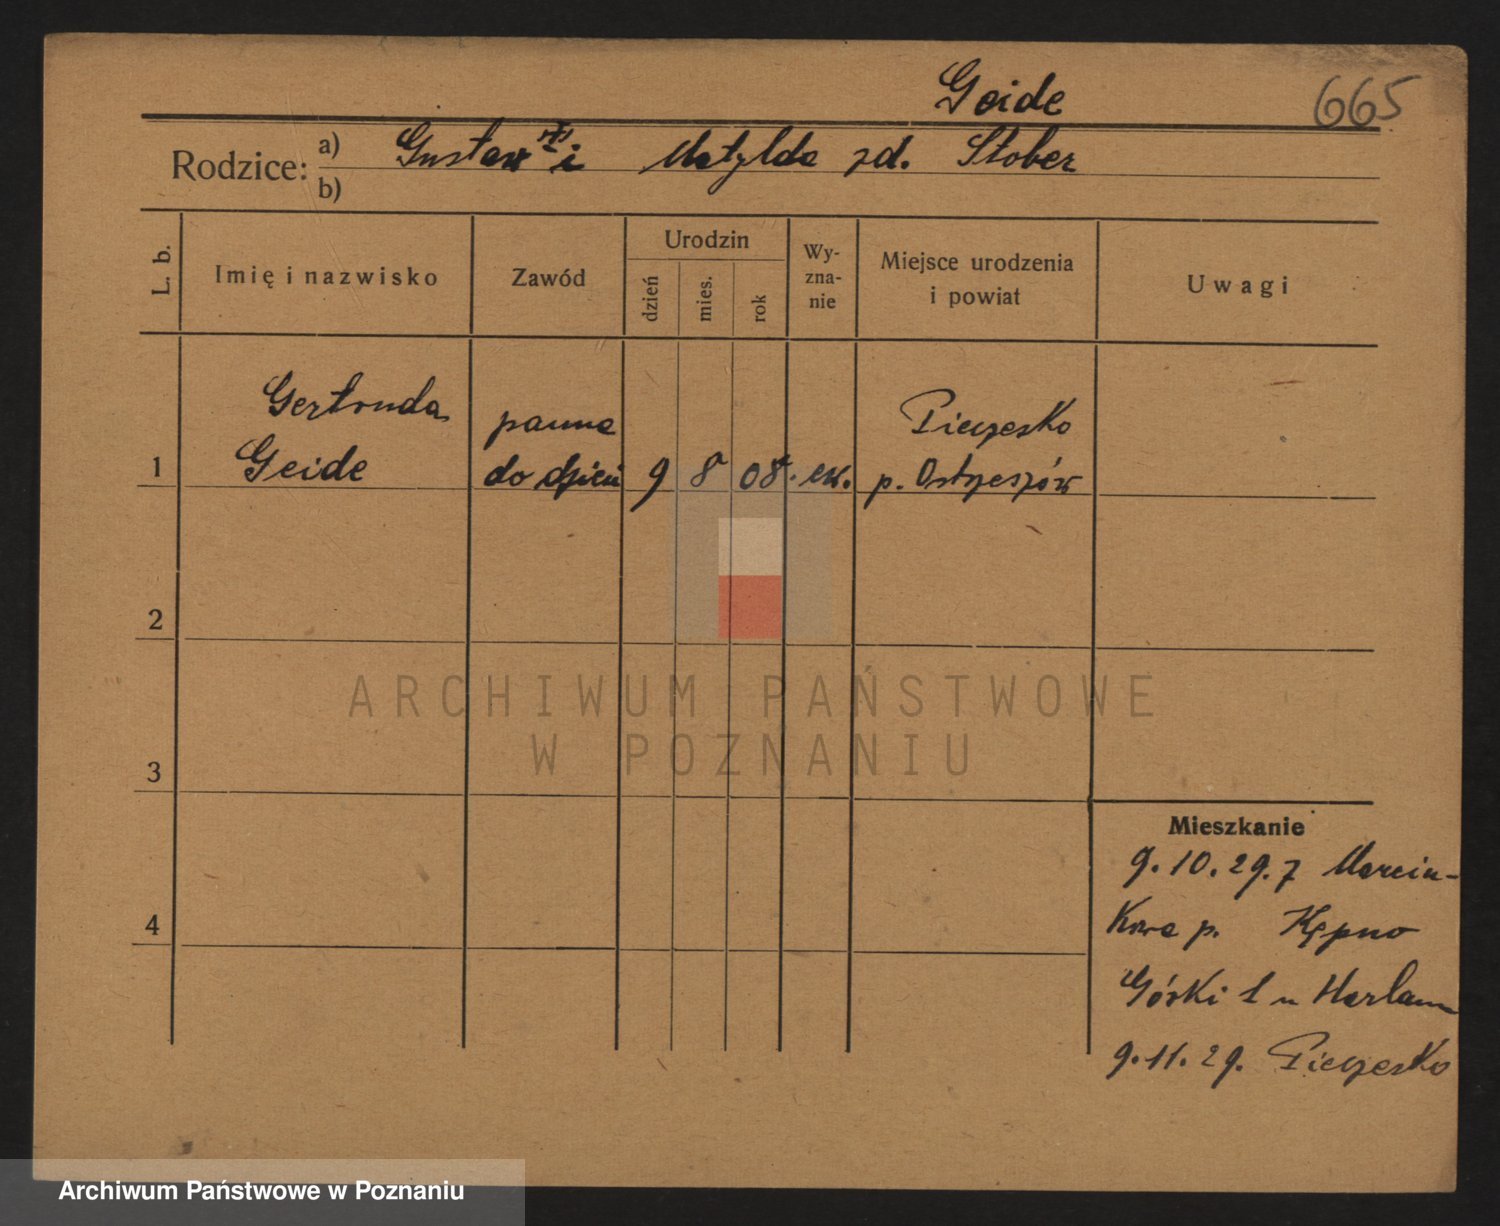 Geide
665
Rodzice: a) Gustaw i Matylda zd. Stober
b)
L. b.
Imię i nazwisko
Zawód
Urodzin
dzień
mies.
rok
Wy-
zna-
nie
Miejsce urodzenia
i powiat
Uwagi
Gertruda
Geide
panna
do dzieci
1
9 8 08. ew.
Pieczesko
p. Ostrzeszów
2
3
4
Mieszkanie
9.10.29. z Marcin-
kowa p. Kępno
Górki 1 u Harlann
9.11.29. Pieczesko
ARCHIWUM PAŃSTWOWE
W POZNANIU
Archiwum Państwowe w Poznaniu